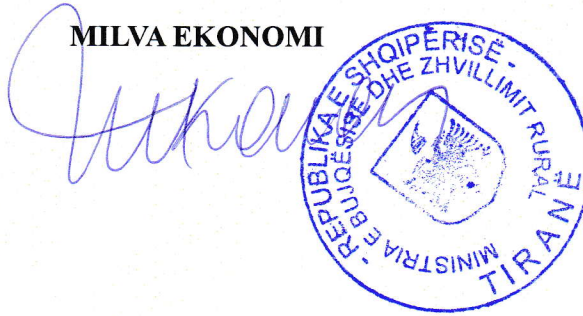 MILVA EKONOMI
- REPUBLIKA E SHQIPËRISË -
MINISTRIA E BUJQËSISË DHE ZHVILLIMIT RURAL
TIRANË